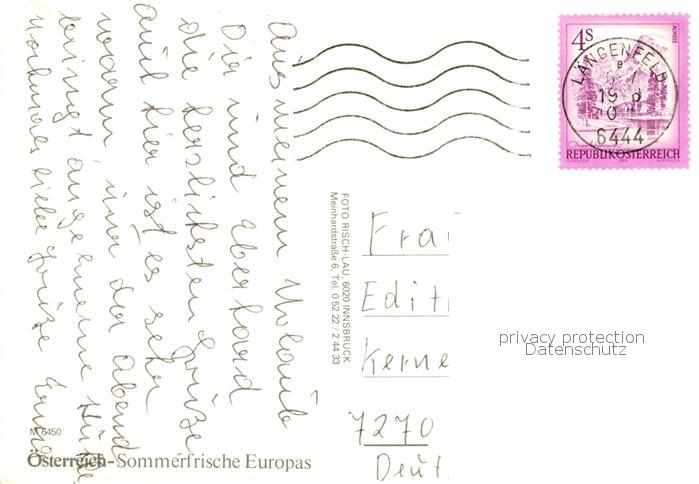 Aus meinem Urlaub
Dir und Eberhard
die herzlichsten Grüße
auch hier ist es sehr
warm, nur der Abend
bringt angenehme Kühle
Nochmals liebe Grüße
FOTO RISCH-LAU, 6020 INNSBRUCK
Meinhardstraße 6, Tel. 0 52 22 / 2 44 33
M 6450
Österreich-Sommerfrische Europas
4S
ALMSEE
REPUBLIK ÖSTERREICH
LÄNGENFELD
6444
Frau
Edit
Kerne
7270
Deut
privacy protection
Datenschutz